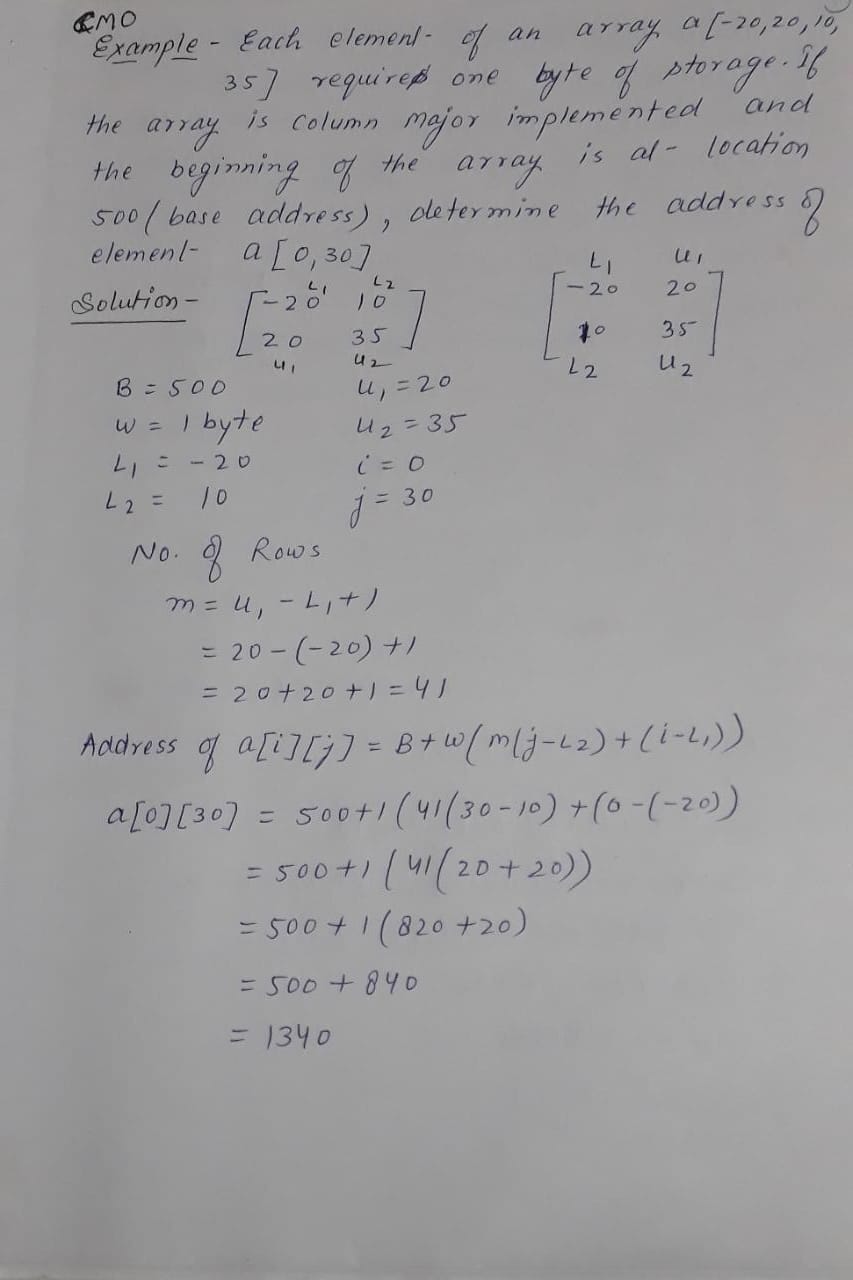 CMO
Example - Each element of an array a[-20,20,10,
35] requires one byte of storage. If
the array is column major implemented and
the beginning of the array is at location
500 (base address), determine the address of
element a[0,30]
L1 U1
Solution - L1 L2
[-20 10
20 35]
U1 U2
[-20 20
10 35]
L2 U2
B = 500 U1 = 20
W = 1 byte U2 = 35
L1 = -20 i = 0
L2 = 10 j = 30
No. of Rows
m = U1 - L1 + 1
= 20 - (-20) + 1
= 20 + 20 + 1 = 41
Address of a[i][j] = B + W(m(j-L2) + (i-L1))
a[0][30] = 500+1(41(30-10) + (0-(-20))
= 500+1(41(20+20))
= 500 + 1(820 +20)
= 500 + 840
= 1340